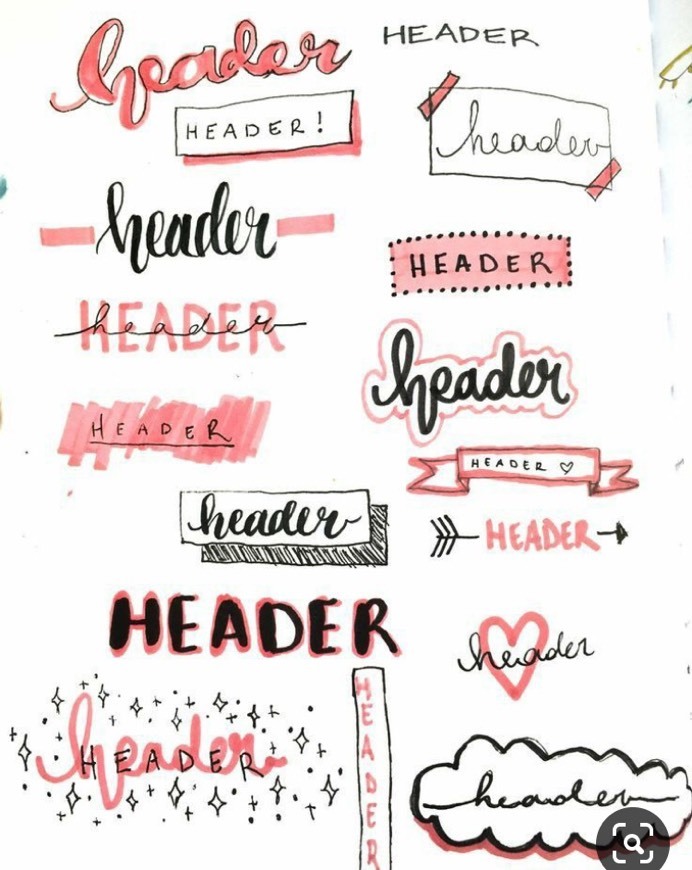 header
HEADER
HEADER!
header
header
HEADER
HEADER
header
header
HEADER
HEADER ♡
header
HEADER
HEADER
header
header
HEADER
HEADER
header